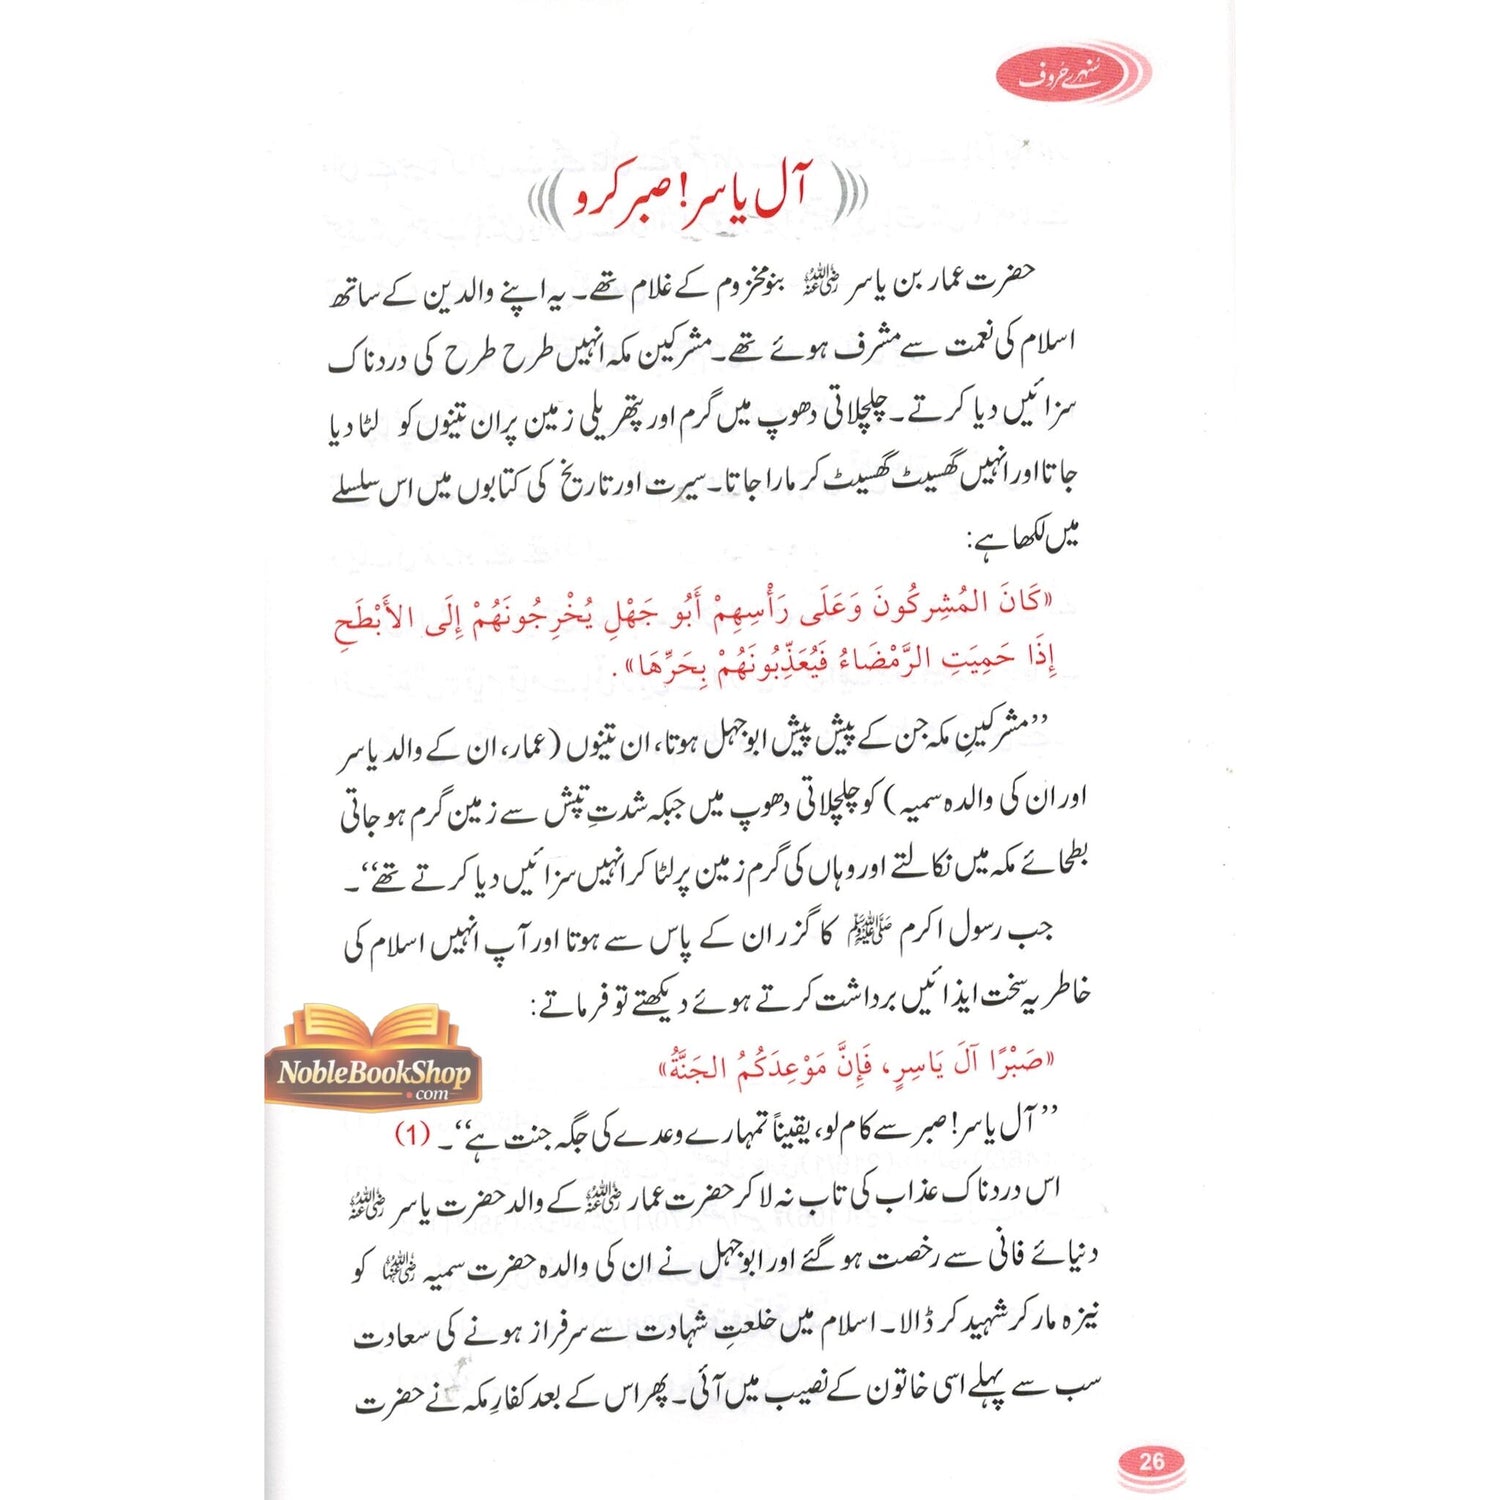 سنہرے حروف
آل یاسر! صبر کرو
حضرت عمار بن یاسر رضی اللہ عنہ بنو مخزوم کے غلام تھے۔ یہ اپنے والدین کے ساتھ
اسلام کی نعمت سے مشرف ہوئے تھے۔ مشرکین مکہ انہیں طرح طرح کی دردناک
سزائیں دیا کرتے۔ چلچلاتی دھوپ میں گرم اور پتھریلی زمین پر ان تینوں کو لٹا دیا
جاتا اور انہیں گھسیٹ گھسیٹ کر مارا جاتا۔ سیرت اور تاریخ کی کتابوں میں اس سلسلے
میں لکھا ہے:
«كَانَ المُشِركُونَ وَعَلَى رَأْسِهِمْ أَبُو جَهْلٍ يُخْرِجُونَهُمْ إِلَى الأَبْطَحِ
إِذَا حَمِيَتِ الرَّمْضَاءُ فَيُعَذِّبُونَهُمْ بِحَرِّهَا».
’’مشرکینِ مکہ جن کے پیش پیش ابوجہل ہوتا، ان تینوں (عمار، ان کے والد یاسر
اور ان کی والدہ سمیہ) کو چلچلاتی دھوپ میں جبکہ شدتِ تپش سے زمین گرم ہو جاتی
بطحائے مکہ میں نکالتے اور وہاں کی گرم زمین پر لٹا کر انہیں سزائیں دیا کرتے تھے‘‘۔
جب رسول اکرم ﷺ کا گزر ان کے پاس سے ہوتا اور آپ انہیں اسلام کی
خاطر یہ سخت ایذائیں برداشت کرتے ہوئے دیکھتے تو فرماتے:
«صَبْرًا آلَ يَاسِرٍ، فَإِنَّ مَوْعِدَكُمُ الجَنَّةُ»
’’آل یاسر! صبر سے کام لو، یقیناً تمہارے وعدے کی جگہ جنت ہے‘‘۔ (1)
اس دردناک عذاب کی تاب نہ لا کر حضرت عمار رضی اللہ عنہ کے والد حضرت یاسر رضی اللہ عنہ
دنیائے فانی سے رخصت ہو گئے اور ابوجہل نے ان کی والدہ حضرت سمیہ رضی اللہ عنہا کو
نیزہ مار کر شہید کر ڈالا۔ اسلام میں خلعتِ شہادت سے سرفراز ہونے کی سعادت
سب سے پہلے اسی خاتون کے نصیب میں آئی۔ پھر اس کے بعد کفارِ مکہ نے حضرت
26
NobleBookShop
.com